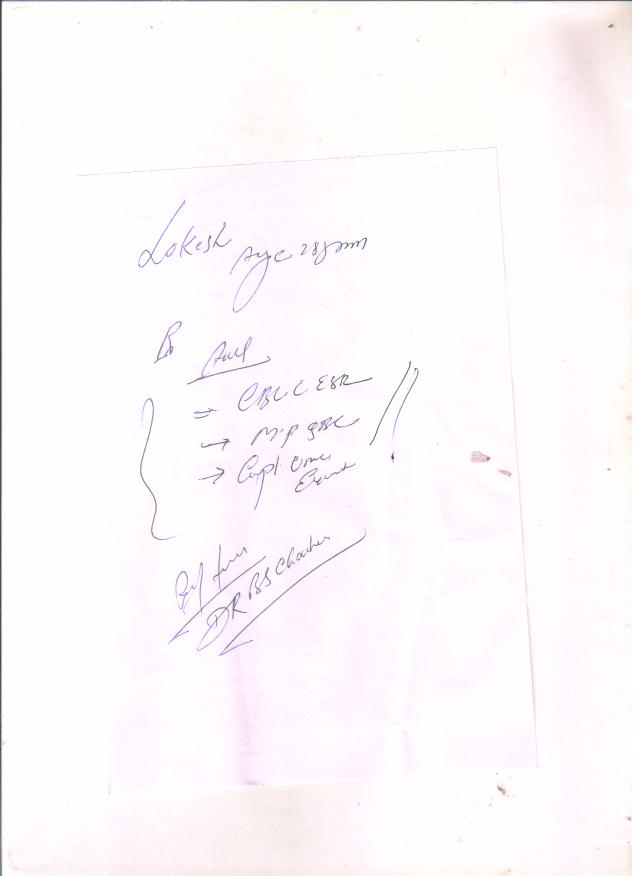 Lokesh
Age 28/
Rx
Adv
⇒ CBC C ESR
→ M.P. QBC
→ Compl. Urine
Exam
Ref from
DR BS Chauhan